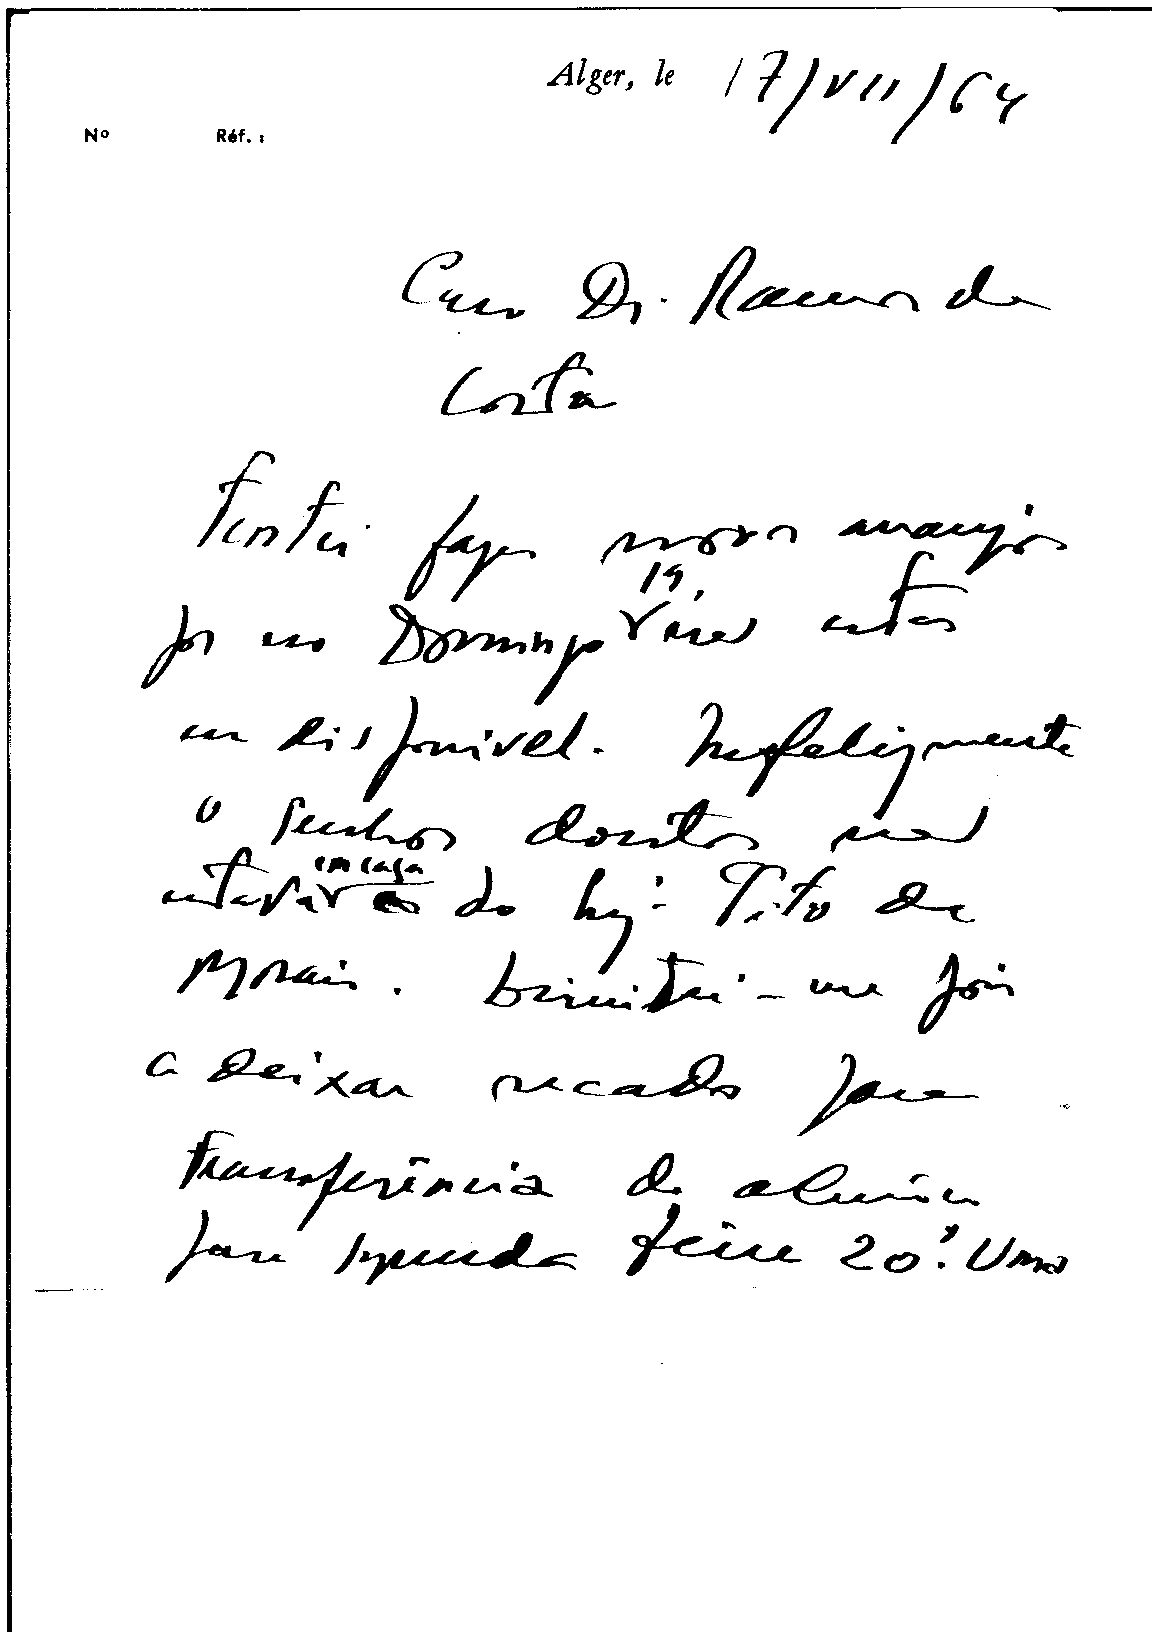 Alger, le 17/VII/64
Nº Réf. :
Caro Dr. Ramos da
Costa
Tentei fazer novos arranjos
por no Domingo 19, não estar
eu disponível. Infelizmente
o senhor doutor não
estava em casa do Eng.º Tito de
Morais. Limitei-me pois
a deixar recado para
transferência do almôço
para segunda feira 20. Uma